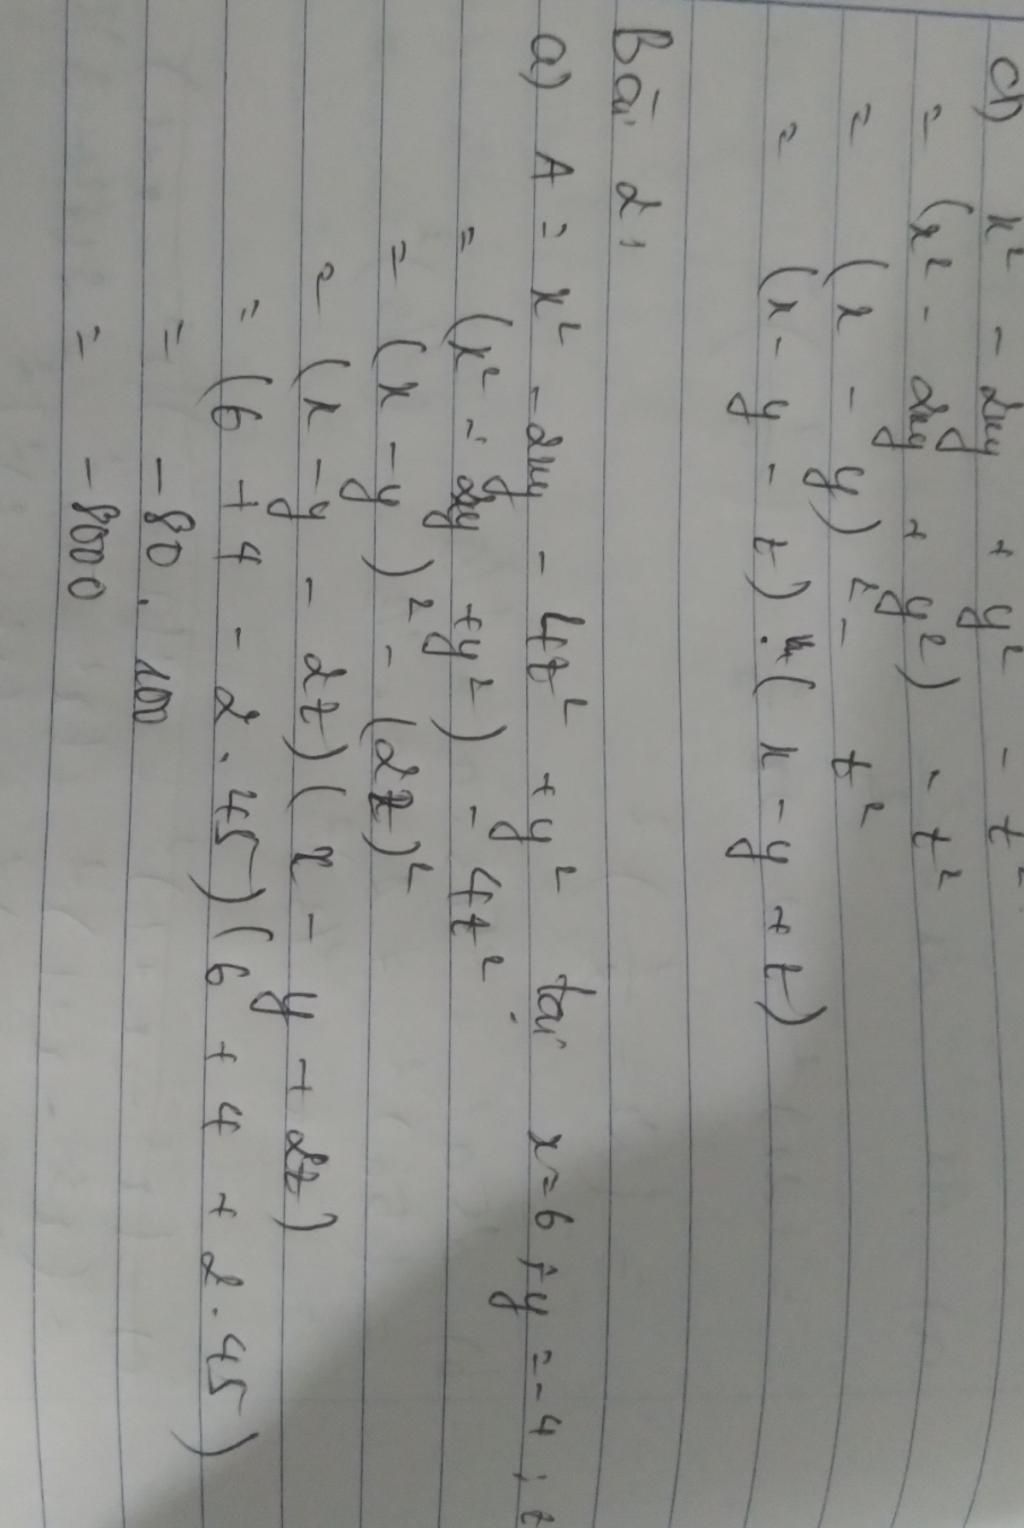 d) x² - 2xy + y² - t²
= (x² - 2xy + y²) - t²
= (x - y)² - t²
= (x - y - t).(x - y + t)
Bài 2:
a) A = x² - 2xy - 4t² + y² tại x = 6 ; y = -4 ; t
= (x² - 2xy + y²) - 4t²
= (x - y)² - (2t)²
= (x - y - 2t)(x - y + 2t)
= (6 + 4 - 2.45)(6 + 4 + 2.45)
= -80.100
= -8000